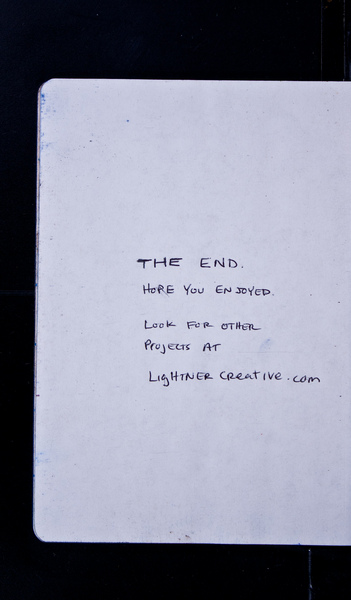 THE END.
HOPE YOU ENJOYED.
LOOK FOR OTHER
PROJECTS AT
LIGHTNER CREATIVE.COM